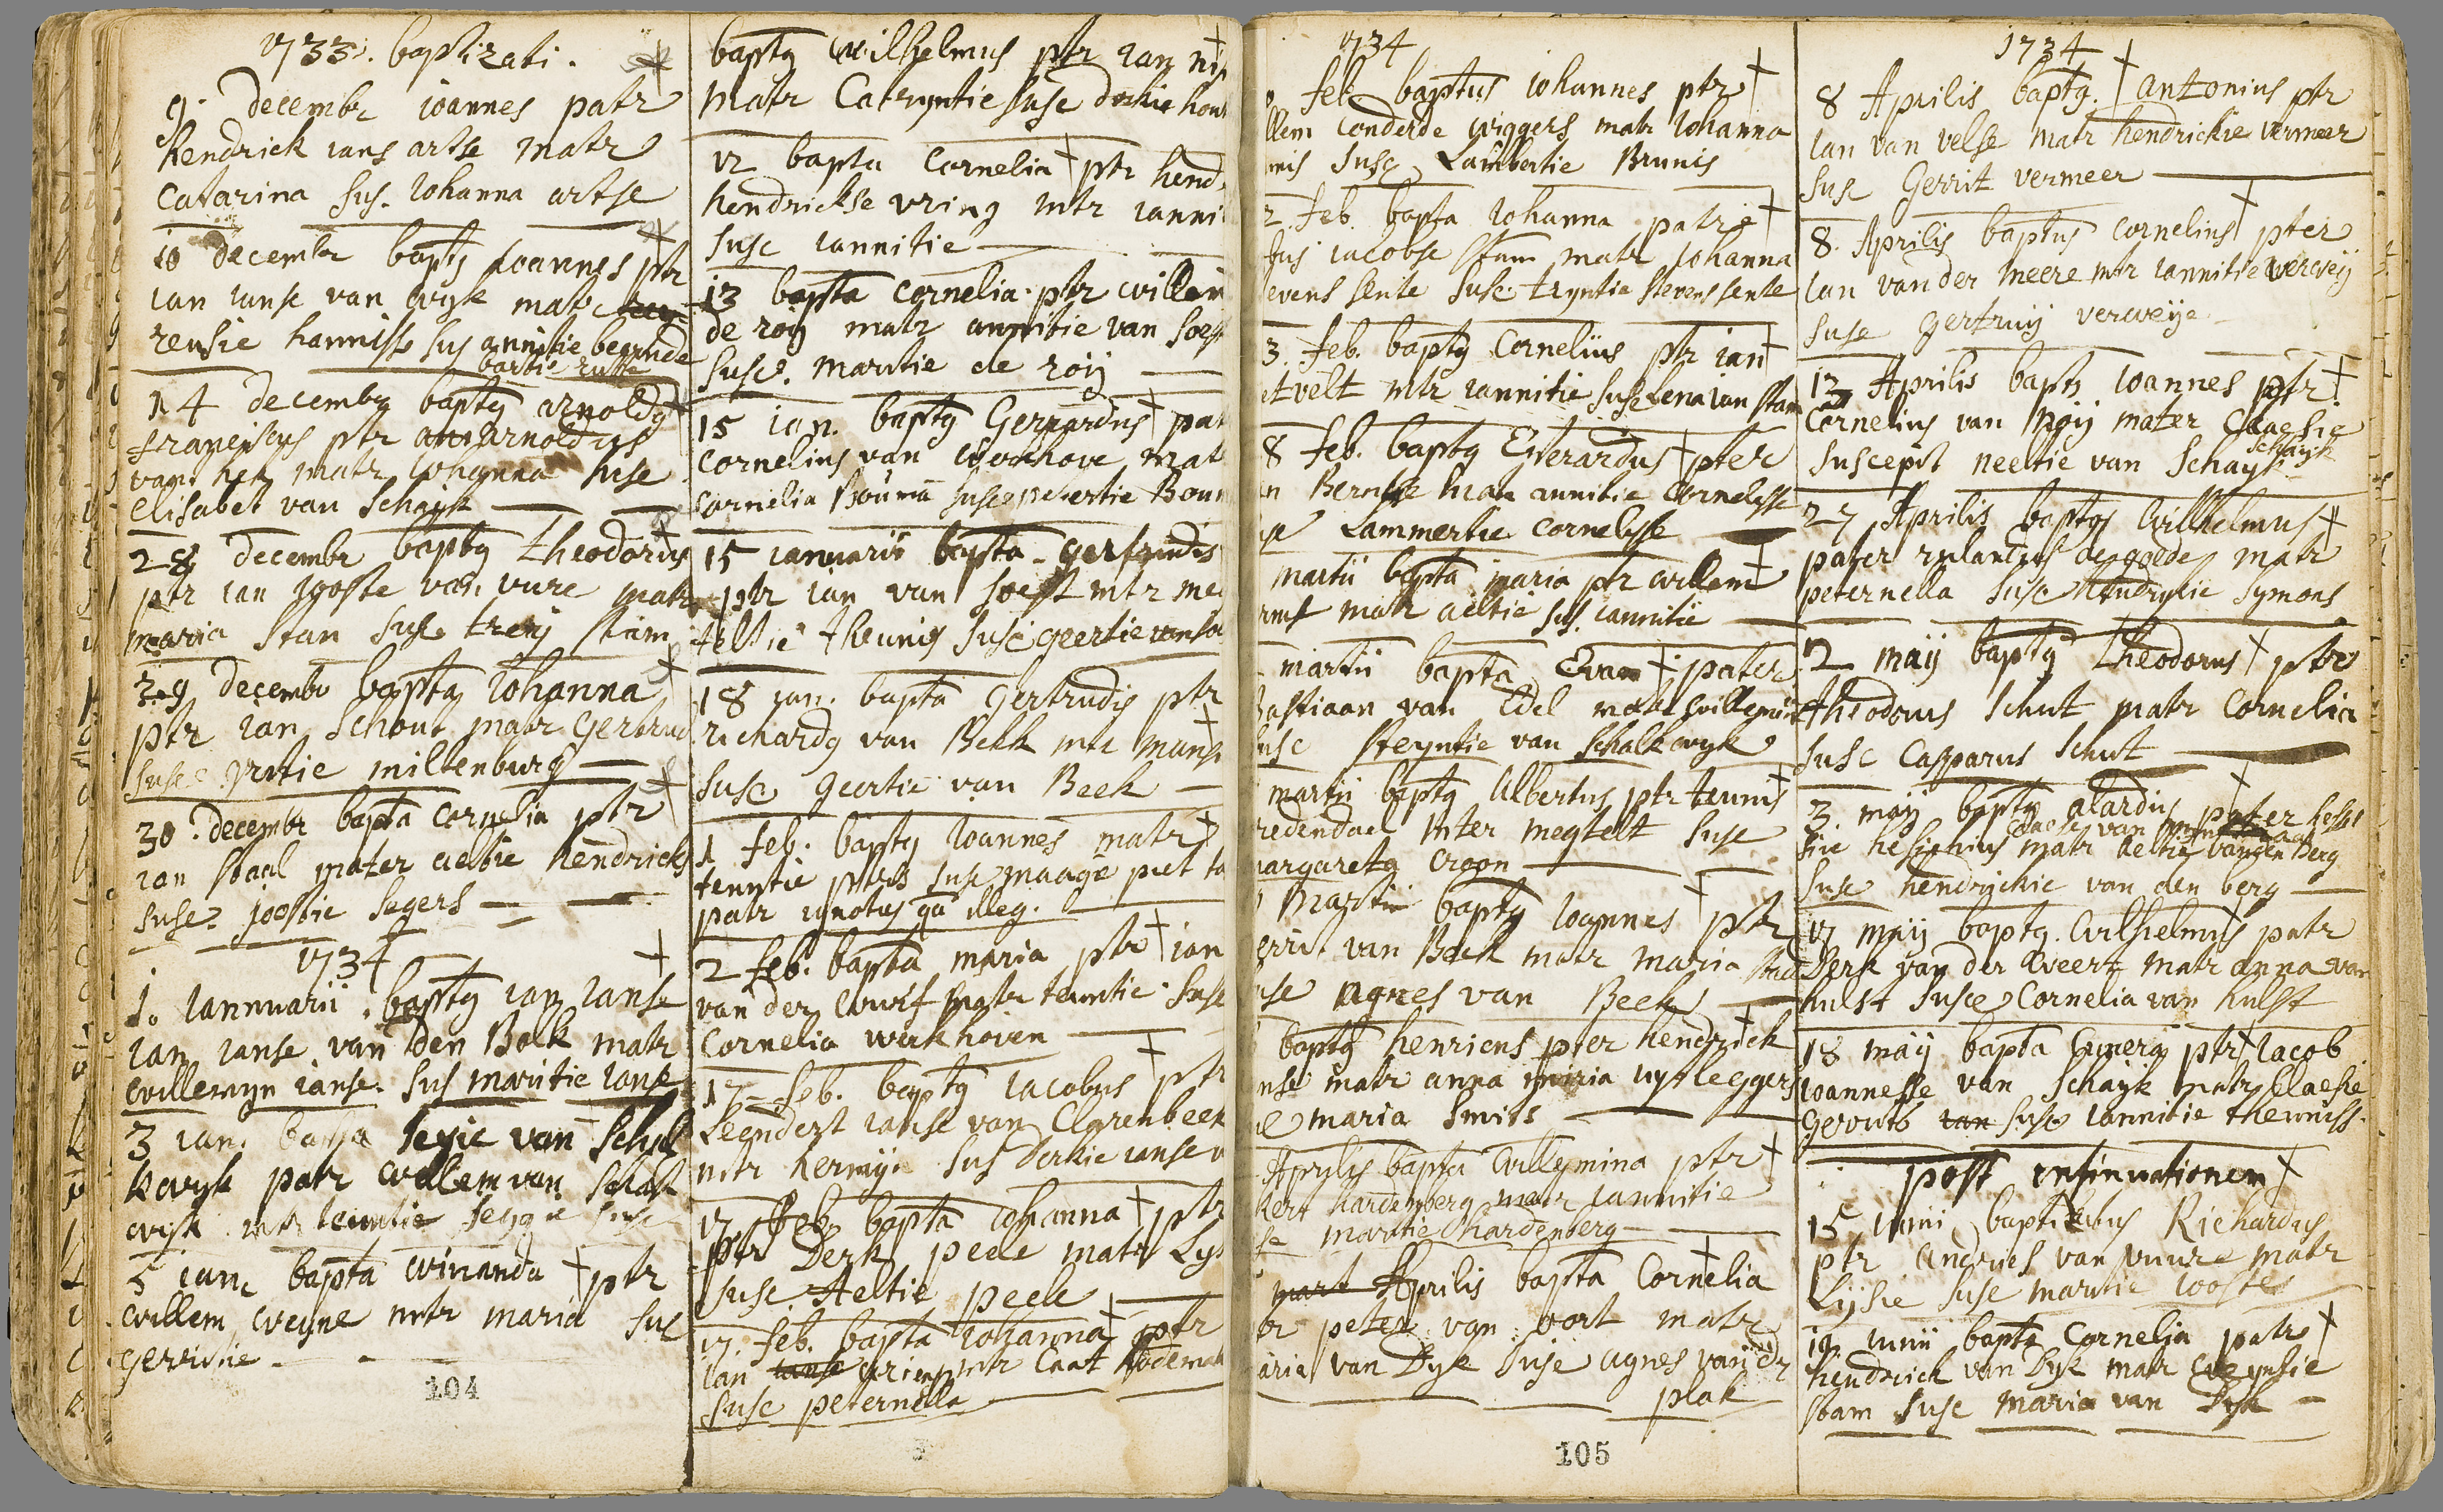 1733. baptizati.
9. decembr ioannes patr
hendrick ians artse matr
catarina sus. iohanna artse
10 decembr baptq ioannes ptr
ian ianse van wyk matr
rensie hannisse sus annitie beernde
14 decembr baptq arnoldq
franciscus ptr arnoldus
van matr iohanna suse
elisabet van schayk
28 decembr baptq theodorus
ptr ian iooste van vure matr
maria stam susc treij stam
29 decembr bapta iohanna
ptr ian schout matr gertrud
susc miltenburg
30. decembr bapta cornelia ptr
ian staal mater aeltie hendricks
susc. joostie segers
1734
1. iannuarii. baptq ian ianse
ian ianse van den Bolk matr
willemyn ianse. sus maritie ianse
3 ian. bapta van schal
kwyk patr willem van schalk
wyk matr teuntie susc
5 ian. bapta winanda ptr
willem weyne mtr maria sus
gerritie
104
baptq wilhelmus ptr ian
matr Catryntie susc derkie
12 bapta Cornelia ptr hend
hendrickse vring mtr ianni
susc iannitie
13 bapta cornelia. ptr willem
de roij matr annitie van soest
susc. maritie de roij
15 ian. baptq Gerrardus pat
cornelius van werckhove mat
cornelia Bouma susc petertie Boum
15 ianuarii bapta gertrudis
ptr ian van soest mtr me
teltie theunis susc geertie van so
18 ian. bapta gertrudis ptr
richardq van Beek mtr
susc geertie van Beek
1 feb. baptq ioannes matr
teuntie susc maagie piet
patr ignotus qu illeg.
2 feb. bapta maria ptr ian
van der matr teuntie susc
Cornelia werkhoven
17 feb. baptq iacobus ptr
Leendert ianse van Clarenbeek
mtr hermij. sus derkie ianse
17 feb. bapta iohanna ptr
ptr Derk peek matr Lys
susc Aeltie peek
17. feb. bapta iohanna ptr
ian mtr Caat
susc peternella
1734
feb baptus iohannes ptr
llem conderde wiggers matr iohanna
susc Lambertie Brunis
2 feb bapta iohanna patre
iacobse stam matr iohanna
evens sente susc. tryntie stevens sente
3. feb. baptq Cornelius ptr ian
etvelt mtr iannitie susc Lena ian stam
8 feb. baptq Everardus pter
n Berntse matr annitie Cornelisse
Lammertie cornelisse
martii bapta maria ptr willem
matr aeltie sus. iannitie
martii bapta Evam pater
bastiaan van Edel matr willemin
susc steyntie van schalkwyk
martii baptq Albertus ptr teunis
redendael mter megtelt susc
margareta croon
Martii baptq ioannes ptr
errit van Beek matr maria
usc agnes van Beek
baptq henricus pter hendrick
nse matr anna maria uytlegger
maria smits
Aprilis bapta willemina ptr
kert hardenberg matr iannitie
maritie hardenberg
Aprilis bapta Cornelia
peter van oort matr
aria van Dyk susc agnes van dr
plak
105
1734
8 Aprilis baptq. antonius ptr
ian van velse matr hendrickie vermeer
susc Gerrit vermeer
8. Aprilis baptus cornelius pter
ian van der meere mtr iannitie verweij
susc gertruij verweije
13 Aprilis baptq ioannes ptr
cornelius van rooij mater Claesie
schayk
suscepit neeltie van schayk
27 Aprilis baptqs wilhelmus
pater rulandus de godde matr
peternella susc hendrykie symons
2 maij baptq theodorus ptr
theodorus schut matr Cornelia
susc Casparus schut
3 maij baptq alardus pater
sive hesichius matr aeltie van den Berg
susc hendrickie van den berg
17 maij baptq. wilhelmus patr
Derk van der weert matr anna van
hulst susce Cornelia van hulst
18 maij bapta ptr iacob
ioannesse van schayk matr Claesie
gerrits susc iannitie theuniss.
post insinuationem
15 iunii baptisatus Richardus
ptr andries van vuure matr
Lijsie susc maritie iooste
19 iunii bapta Cornelia patr
hendrick van Dyk matr
stam susc maria van Dyk